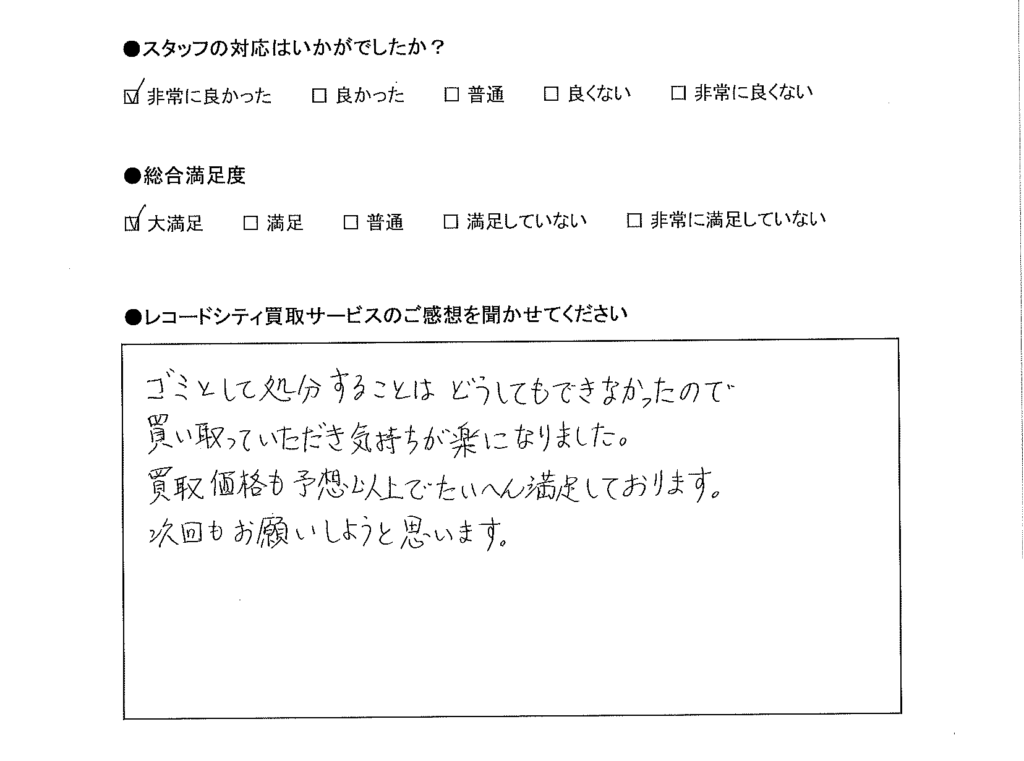 ●スタッフの対応はいかがでしたか？
☑ 非常に良かった □ 良かった □ 普通 □ 良くない □ 非常に良くない
●総合満足度
☑ 大満足 □ 満足 □ 普通 □ 満足していない □ 非常に満足していない
●レコードシティ買取サービスのご感想を聞かせてください
ゴミとして処分することは どうしてもできなかったので
買い取っていただき気持ちが楽になりました。
買取価格も予想以上でたいへん満足しております。
次回もお願いしようと思います。